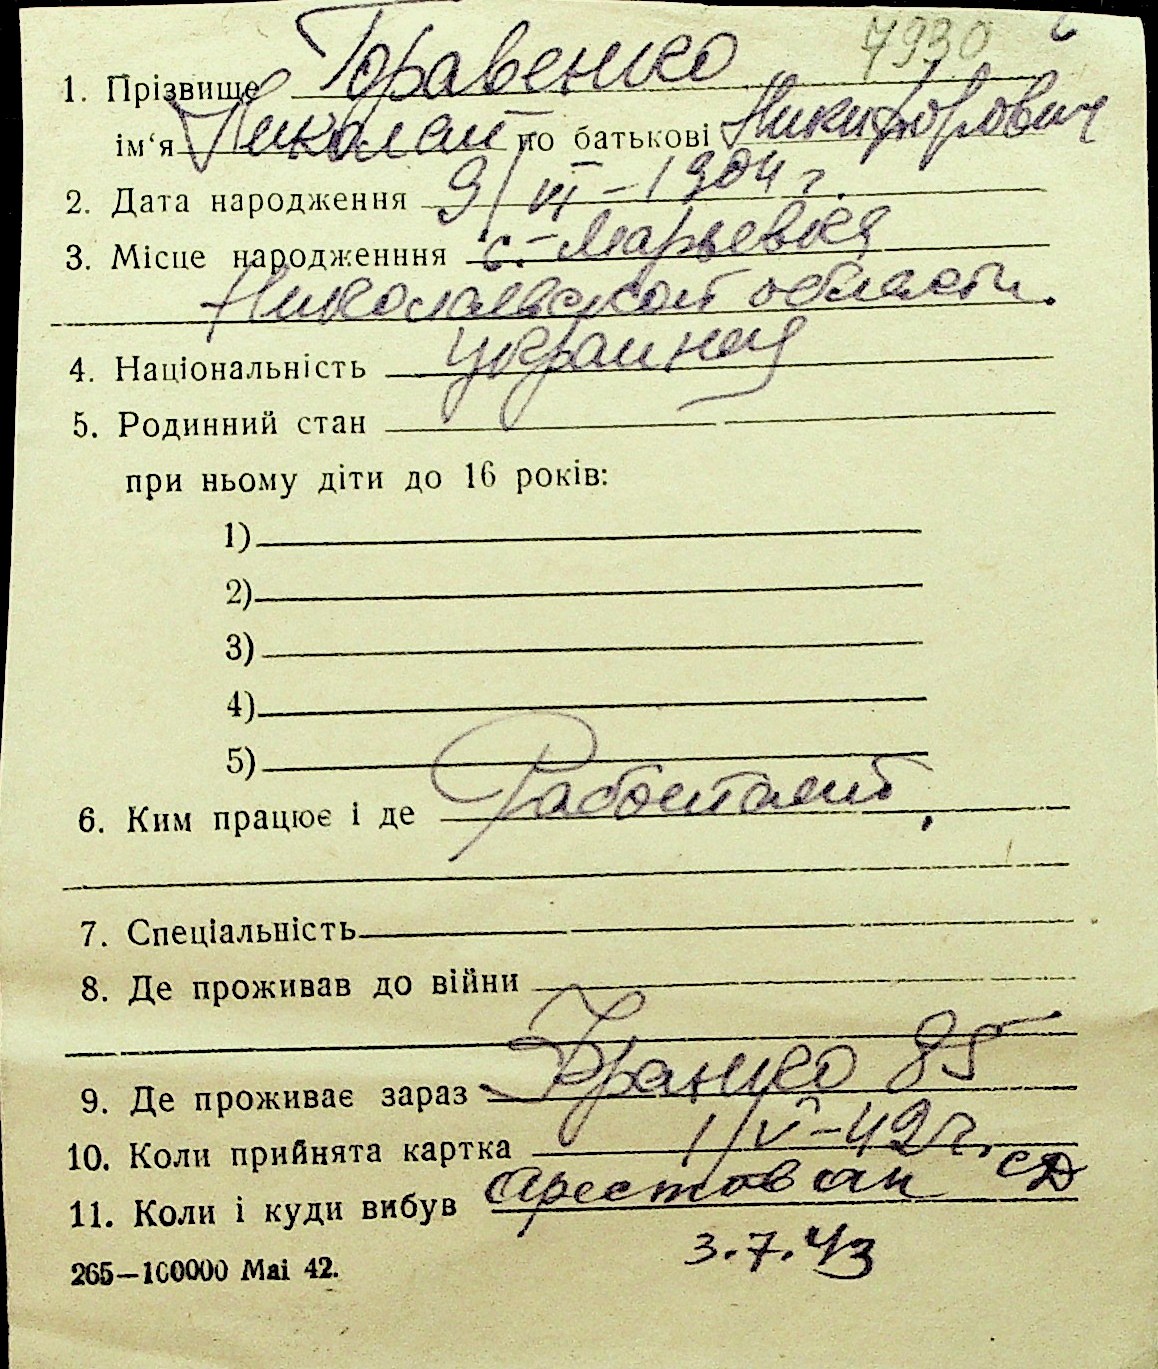 7930
1. Прізвище Горавенко
ім‘я Николай по батькові Никифорович
2. Дата народження 9/VI–1904 г.
3. Місце народженння с. Марьевка
Николаевской области.
4. Національність украинец
5. Родинний стан
при ньому діти до 16 років:
1)
2)
3)
4)
5)
6. Ким працює і де Работает.
7. Спеціальність
8. Де проживав до війни
9. Де проживає зараз Франко 85
10. Коли прийнята картка 1/V–42 г.
11. Коли і куди вибув арестован СД
3.7.43
265—100000 Mai 42.